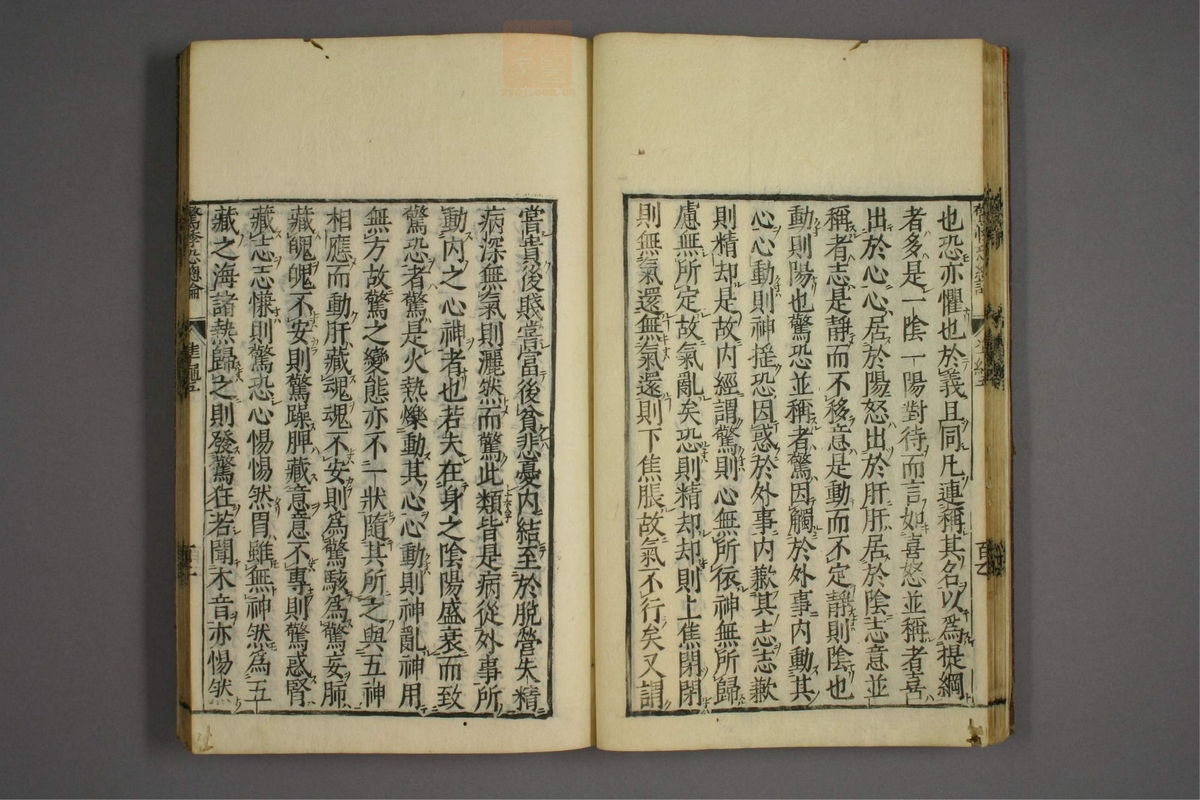 也恐亦懼也於義且同凡連稱其名以為提綱
者多是一陰一陽對待而言如喜怒並稱者喜
出於心心居於陽怒出於肝肝居於陰志意並
稱者志是靜而不移意是動而不定靜則陰也
動則陽也驚恐並稱者驚因觸於外事內動其
心心動則神搖恐因惑於外事內歉其志志歉
則精却是故內經謂驚則心無所依神無所歸
慮無所定故氣亂矣恐則精却却則上焦閉閉
則無氣還無氣還則下焦脹故氣不行矣又謂
嘗貴後賤嘗富後貧悲憂內結至於脫營失精
病深無氣則灑然而驚此類皆是病從外事所
動內之心神者也若夫在身之陰陽盛衰而致
驚恐者驚是火熱爍動其心心動則神亂神用
無方故驚之變態亦不一狀隨其所之與五神
相應而動肝藏魂魂不安則為驚駭為驚妄肺
藏魄魄不安則驚躁脾藏意意不專則驚惑腎
藏志志慊則驚恐心惕惕然胃雖無神然為五
藏之海諸熱歸之則發驚狂若聞木音亦惕然
驚悸恐總論